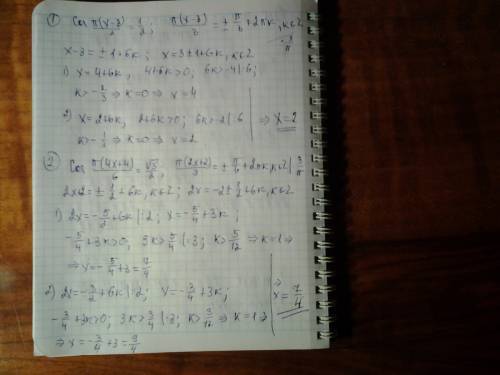 ① cos π(x-3)/3 = 1/2; π(x-3)/3 = ± π/3 + 2πk, k∈Z | · 3/π
x-3 = ± 1+6k; x = 3 ± 1+6k, k∈Z
1) x = 4+6k, 4+6k>0; 6k>-4 |:6;
k > -2/3 ⇒ k=0 ⇒ x=4
2) x = 2+6k, 2+6k>0; 6k>-2 |:6 ⇒ x=2
k > -1/3 ⇒ k=0 ⇒ x=2
② cos π(4x+4)/6 = √3/2, π(2x+2)/3 = ± π/6 + 2πk, k∈Z | 3/π
2x+2 = ± 1/2 + 6k, k∈Z; 2x = -2 ± 1/2 + 6k, k∈Z
1) 2x = -5/2 + 6k |:2; x = -5/4 + 3k;
-5/4 + 3k>0, 3k> 5/4 |:3; k> 5/12 ⇒ k=1 ⇒
⇒ x = -5/4 + 3 = 7/4
2) 2x = -3/2 + 6k |:2; x = -3/4 + 3k; ⇒ x = 7/4
-3/4 + 3k>0; 3k> 3/4 |:3; k> 3/12 ⇒ k=1 ⇒
⇒ x = -3/4 + 3 = 9/4